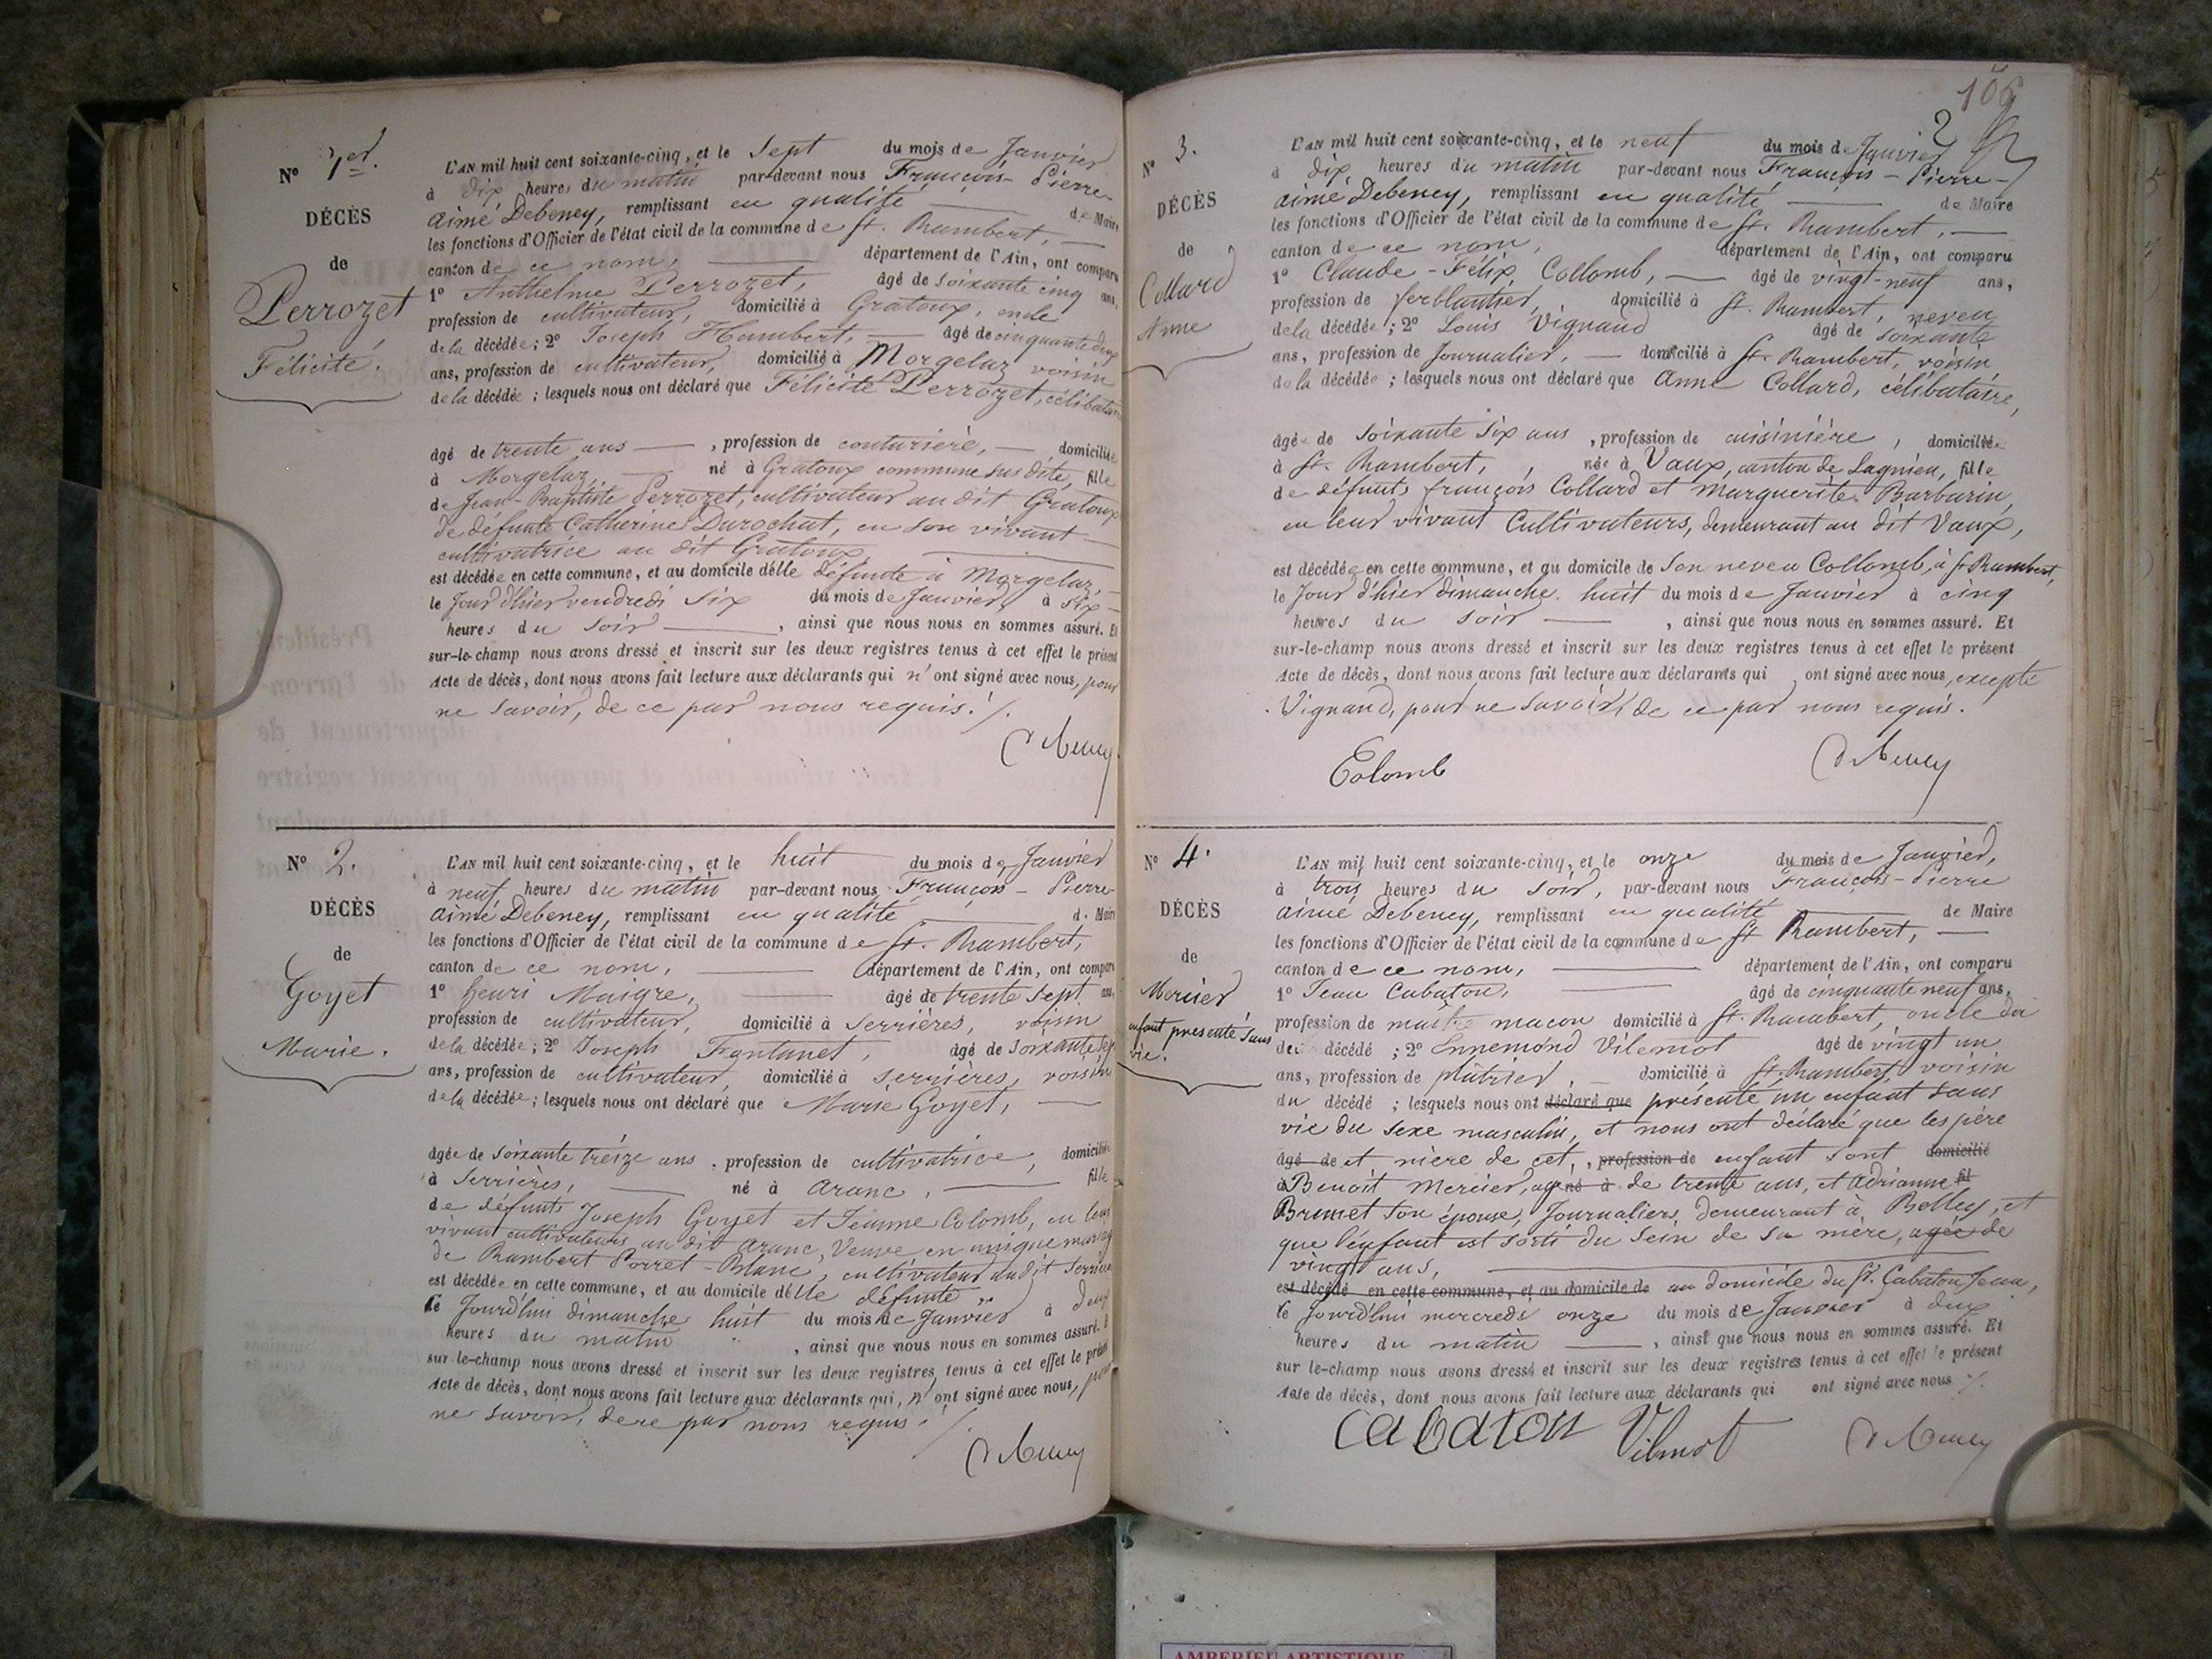 N° 1er.
DÉCÈS
de
Perrozet
Félicité.
L'AN mil huit cent soixante-cinq, et le sept du mois de Janvier
à dix heures du matin par-devant nous François-Pierre
aimé Debeney, remplissant en qualité de Maire
les fonctions d'Officier de l'état civil de la commune de St. Rambert,
canton de ce nom, département de l'Ain, ont comparu
1° Anthelme Perrozet, âgé de soixante cinq ans,
profession de cultivateur, domicilié à Gratoux, oncle
de la décédée; 2° Joseph Humbert, âgé de cinquante deux
ans, profession de cultivateur, domicilié à Morgelaz voisin
de la décédée; lesquels nous ont déclaré que Félicité Perrozet, célibataire
âgé de trente ans, profession de couturière, domiciliée
à Morgelaz, né à Gratoux commune susdite, fille
de Jean-Baptiste Perrozet, cultivateur au dit Gratoux
de défunte Catherine Durochat, en son vivant
cultivatrice au dit Gratoux,
est décédée en cette commune, et au domicile de lle défunte à Morgelaz,
le Jour d'hier vendredi Six du mois de Janvier à Six
heures du Soir, ainsi que nous nous en sommes assuré. Et
sur-le-champ nous avons dressé et inscrit sur les deux registres tenus à cet effet le présent
Acte de décès, dont nous avons fait lecture aux déclarants qui n'ont signé avec nous, pour
ne savoir, de ce par nous requis. /.
N° 2.
DÉCÈS
de
Goyet
Marie.
L'AN mil huit cent soixante-cinq, et le huit du mois de Janvier
à neuf heures du matin par-devant nous François-Pierre
aimé Debeney, remplissant en qualité de Maire
les fonctions d'Officier de l'état civil de la commune de St. Rambert,
canton de ce nom, département de l'Ain, ont comparu
1° henri Maigre, âgé de trente sept ans,
profession de cultivateur, domicilié à Serrières, voisin
de la décédée; 2° Joseph Frantanet, âgé de soixante sep
ans, profession de cultivateur, domicilié à Serrières, voisin
de la décédée; lesquels nous ont déclaré que Marie Goyet,
âgée de soixante treize ans, profession de cultivatrice, domiciliée
à Serrières, né à Aranc, fille
de défunts Joseph Goyet et Jeanne Colomb, en leur
vivant cultivateurs au dit Aranc, Veuve en unique mariag
de Rambert Porret-Blanc, cultivateur audit Serrière
est décédée en cette commune, et au domicile de lle défunte
le Jourd'hui dimanche huit du mois de Janvier à deux
heures du matin, ainsi que nous nous en sommes assuré. E
sur-le-champ nous avons dressé et inscrit sur les deux registres tenus à cet effet le présen
Acte de décès, dont nous avons fait lecture aux déclarants qui, n'ont signé avec nous, pour
ne savoir, de ce par nous requis. /.
106
2
N° 3.
DÉCÈS
de
Collard
Anne
L'AN mil huit cent soixante-cinq, et le neuf du mois de Janvier
à dix heures du matin par-devant nous François-Pierre-
aimé Debeney, remplissant en qualité de Maire
les fonctions d'Officier de l'état civil de la commune de St. Rambert,
canton de ce nom, département de l'Ain, ont comparu
1° Claude-Félix Collomb, âgé de vingt-neuf ans,
profession de ferblantier, domicilié à St. Rambert, neveu
de la décédée; 2° Louis Vignaud âgé de soixante
ans, profession de Journalier, domicilié à St. Rambert, voisin
de la décédée; lesquels nous ont déclaré que Anne Collard, célibataire,
âgée de soixante six ans, profession de cuisinière, domiciliée
à St. Rambert, née à Vaux, canton de Lagnieu, fille
de défunts françois Collard et Marguerite Barbarin,
en leur vivant Cultivateurs, demeurant au dit Vaux,
est décédée en cette commune, et au domicile de son neveu Collomb, à St Rambert,
le Jour d'hier dimanche huit du mois de Janvier à cinq
heures du soir, ainsi que nous nous en sommes assuré. Et
sur-le-champ nous avons dressé et inscrit sur les deux registres tenus à cet effet le présent
Acte de décès, dont nous avons fait lecture aux déclarants qui ont signé avec nous, excepté
Vignaud, pour ne savoir, de ce par nous requis.
Colomb
N° 4.
DÉCÈS
de
Mercier
enfant présenté sans
vie.
L'AN mil huit cent soixante-cinq, et le onze du mois de Janvier,
à trois heures du soir, par-devant nous François-Pierre
aimé Debeney, remplissant en qualité de Maire
les fonctions d'Officier de l'état civil de la commune de St Rambert,
canton de ce nom, département de l'Ain, ont comparu
1° Jean Cabaton, âgé de cinquante neuf ans,
profession de maître maçon domicilié à St. Rambert, oncle du
du décédé; 2° Ennemond Vilemot âgé de vingt un
ans, profession de plâtrier, domicilié à St. Rambert voisin
du décédé; lesquels nous ont déclaré que présenté un enfant sans
vie du sexe masculin, et nous ont déclaré que les père
âgé de et mère de cet, profession de enfant sont domicilié
à Benoit Mercier, agé né à de trente ans, et Adrianne fil
Brunet son épouse, Journaliers, demeurant à Belley, et
que l'enfant est sorti du sein de sa mère, agée de
vingt ans,
est décédé en cette commune, et au domicile de au domicile du Sr. Cabaton Jean,
le Jourd'hui mercredi onze du mois de Janvier à deux
heures du matin, ainsi que nous nous en sommes assuré. Et
sur le-champ nous avons dressé et inscrit sur les deux registres tenus à cet effet le présent
Acte de décès, dont nous avons fait lecture aux déclarants qui ont signé avec nous /.
Cabaton Vilmot
AMBERIEU ARTISTIQUE